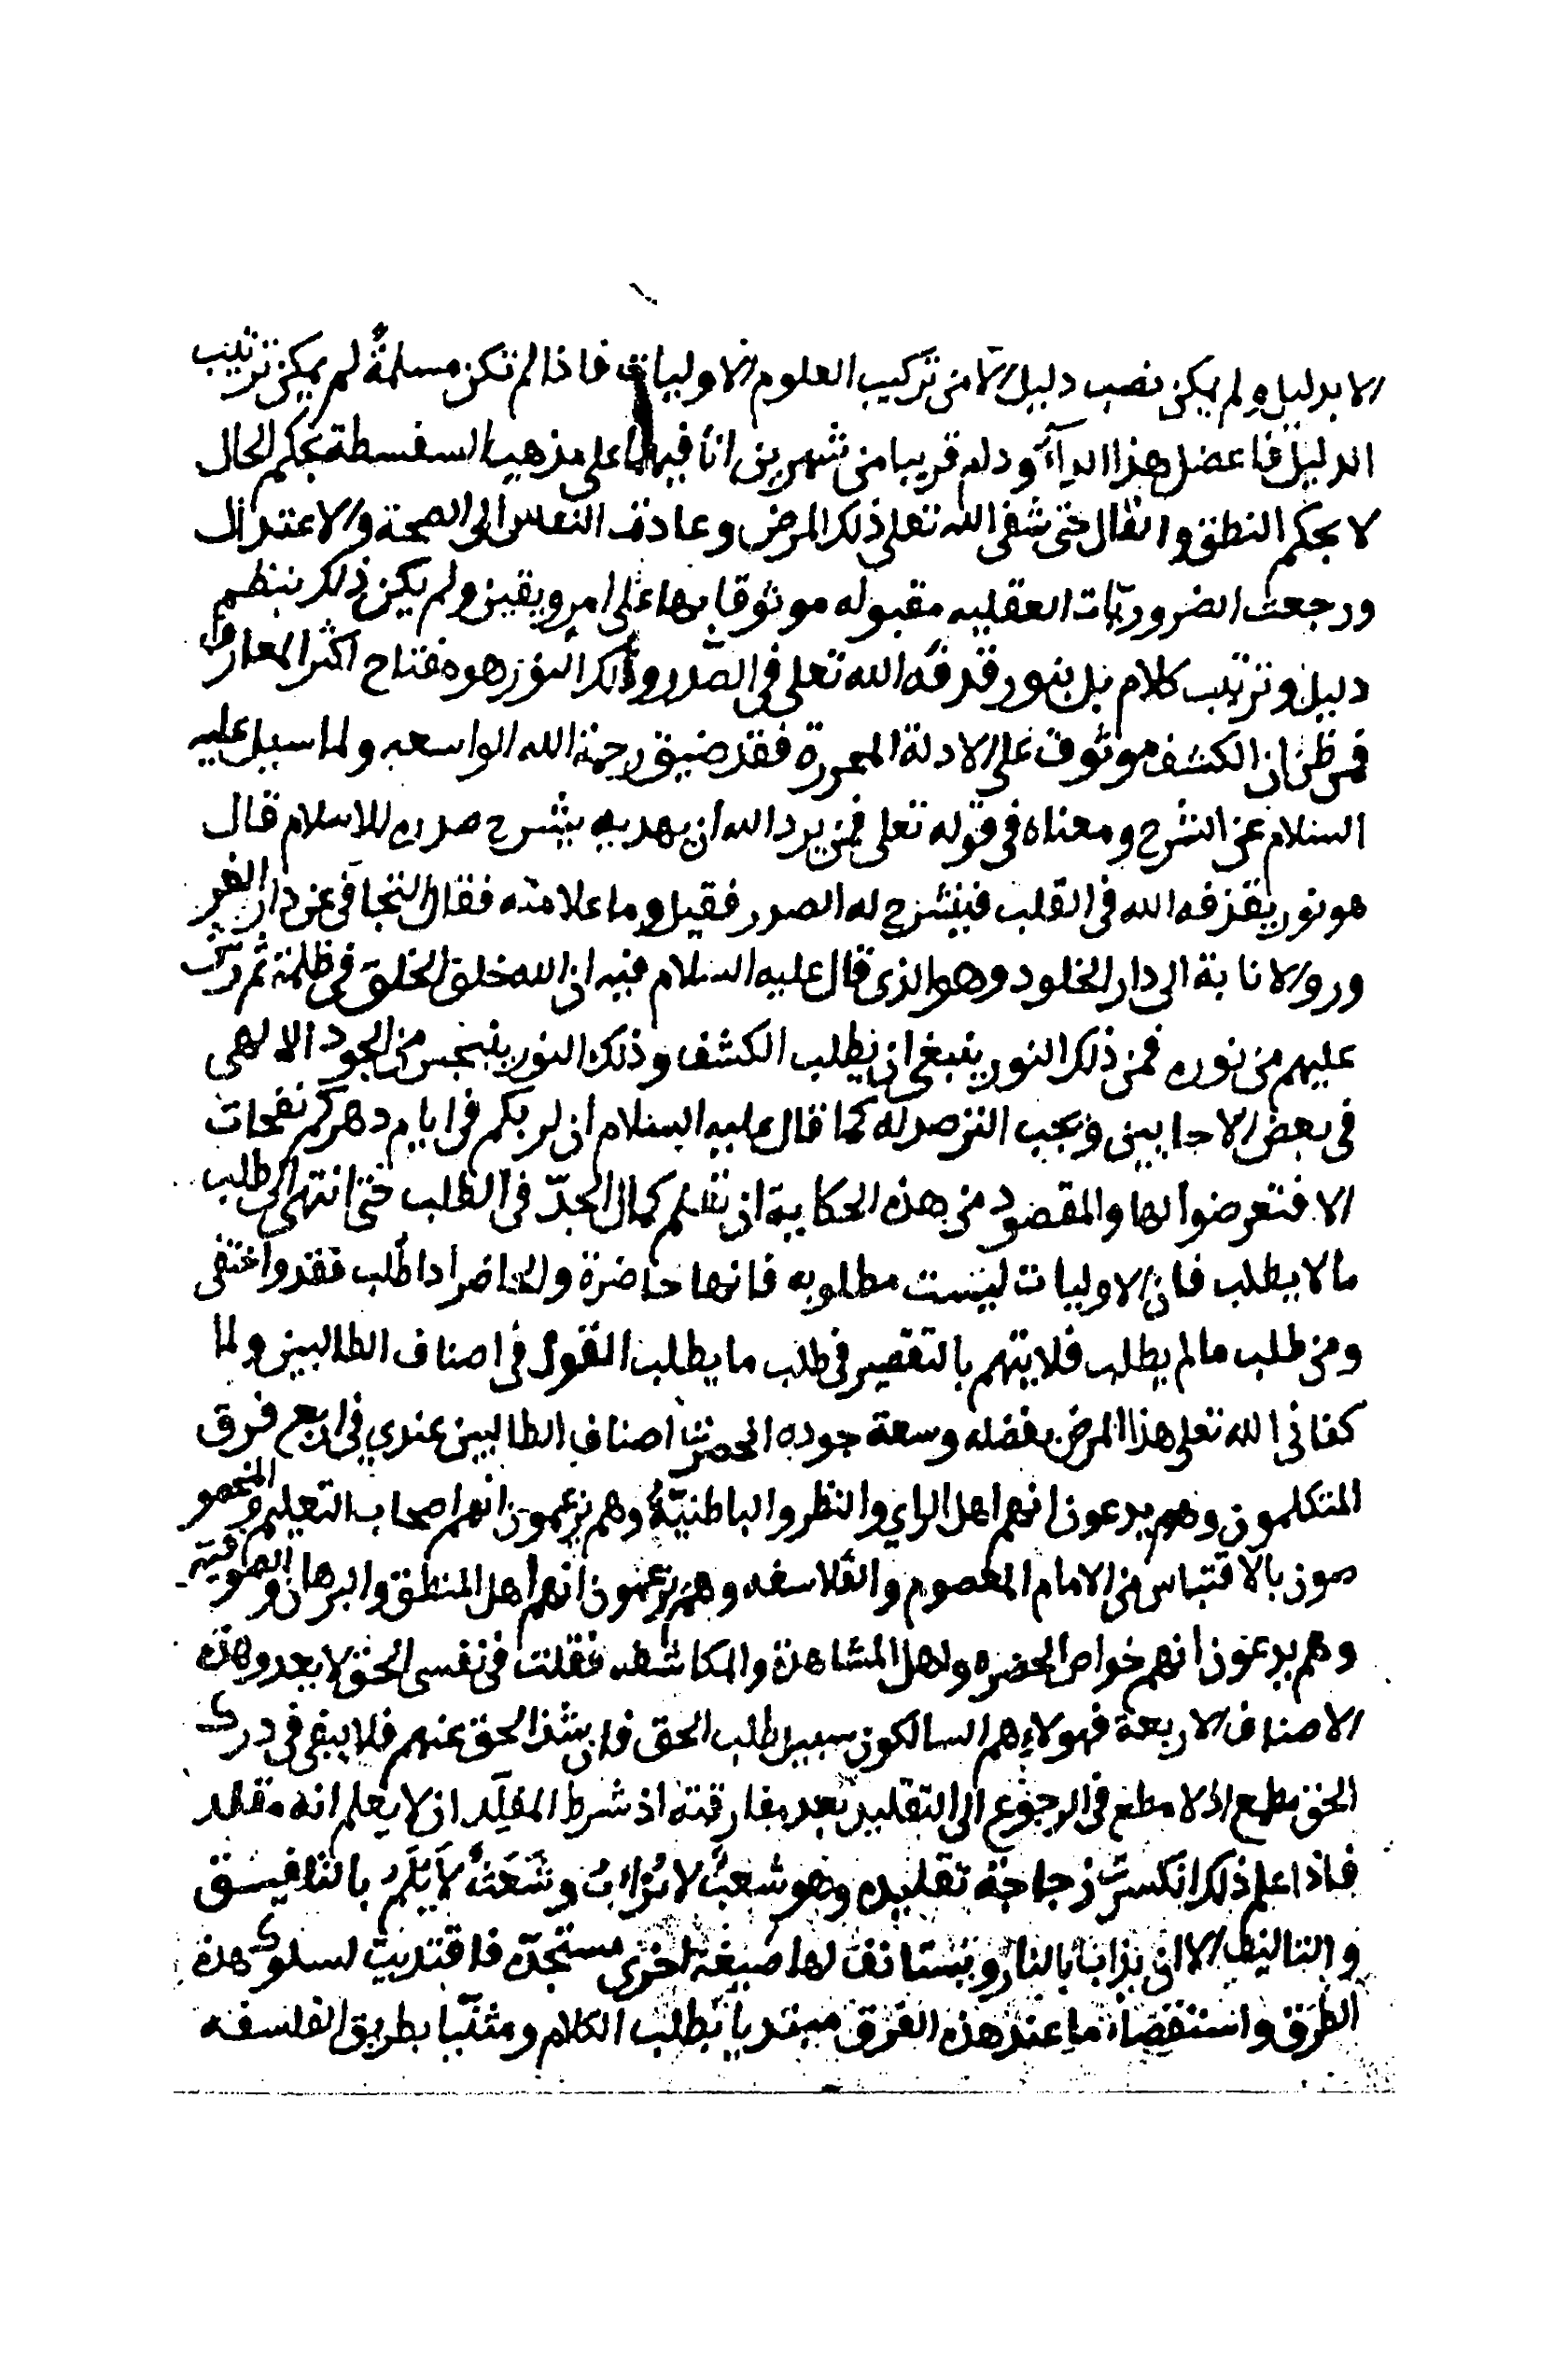 الا بدليل ولم يمكن نصب دليل الا من تركيب العلوم الاوليات فاذا لم تكن مسلمةً لم يمكن ترتيب
الدليل فاعضل هذا الداء ودام قريبا من شهرين انا فيهما على مذهب السفسطة بحكم الحال
لا بحكم النطق والقال حتى شفى الله تعلى ذلك المرض وعادت النفس الى الصحة والاعتدال
ورجعت الضروريات العقليه مقبوله موثوقا بها على امن ويقين ولم يكن ذلك بنظم
دليل وترتيب كلام بل بنور قذفه الله تعلى في الصدر وذلك النور هو مفتاح اكثر المعارف
فمن ظن ان الكشف موقوف على الادلة المحررة فقد ضيق رحمة الله الواسعه ولما سيل عليه
السلام عن الشرح ومعناه في قوله تعلى فمن يرد الله ان يهديه يشرح صدره للاسلام قال
هو نور يقذفه الله في القلب فينشرح له الصدر فقيل وما علامته فقال التجافى عن دار الغر
ور والانابة الى دار الخلود وهو الذى قال عليه السلام فيه ان الله خلق الخلق في ظلمة ثم رش
عليهم من نوره فمن ذلك النور ينبغى ان يطلب الكشف وذلك النور ينبجس من الجود الالهى
في بعض الاحايين ويجب الترصد له كما قال عليه السلام ان لربكم في ايام دهركم نفحات
الا فتعرضوا لها والمقصود من هذه الحكاية ان تعلم كمال الجدّ في الطلب حتى انتهى الى طلب
ما لا يطلب فان الاوليات ليست مطلوبه فانها حاضرة والحاضر اذا طلب فقد واختفى
ومن طلب ما لم يطلب فلا يتهم بالتقصير في طلب ما يطلب القول في اصناف الطالبين ولما
كفاني الله تعلى هذا المرض بفضله وسعة جوده انحصرت اصناف الطالبين عندي في اربع فرق
المتكلمون وهم يدعون انهم اهل الراي والنظر والباطنيّة وهم يزعمون انهم اصحاب التعليم والمخصو
صون بالاقتباس من الامام المعصوم والفلاسفه وهم يزعمون انهم اهل المنطق والبرهان والصوفية
وهم يدعون انهم خواص الحضره واهل المشاهدة والمكاشفه فقلت في نفسى الحق لا يعدو هذه
الاصناف الاربعة فهولاء هم السالكون سبيل طلب الحق فان شذ الحق عنهم فلا يبقى في درك
الحق مطمع اذ لا مطمع في الرجوع الى التقليد بعد مفارقته اذ شرط المقلّد ان لا يعلم انه مقلد
فاذا علم ذلك انكسرت زجاجة تقليده وهو شعبٌ لا يُرْابُ وشَعَثٌ لا يُلَمُّ بالتلفيق
والتاليف الا ان يذاب بالنار ويستانف لها صيغة اخرى مستجدّه فابتديت لسلوك هذه
الطرق واستقصاء ما عند هذه الفرق مبتدياً بطلب الكلام ومثنّيا بطريق الفلسفه